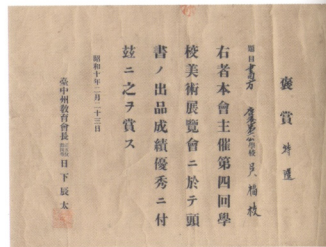 褒賞 特選
題目
右者本會主催第四回學
校美術展覽會ニ於テ頭
書ノ出品成績優秀ニ付
玆ニ之ヲ賞ス
昭和十年二月二十三日
臺中州教育會長 日下辰太